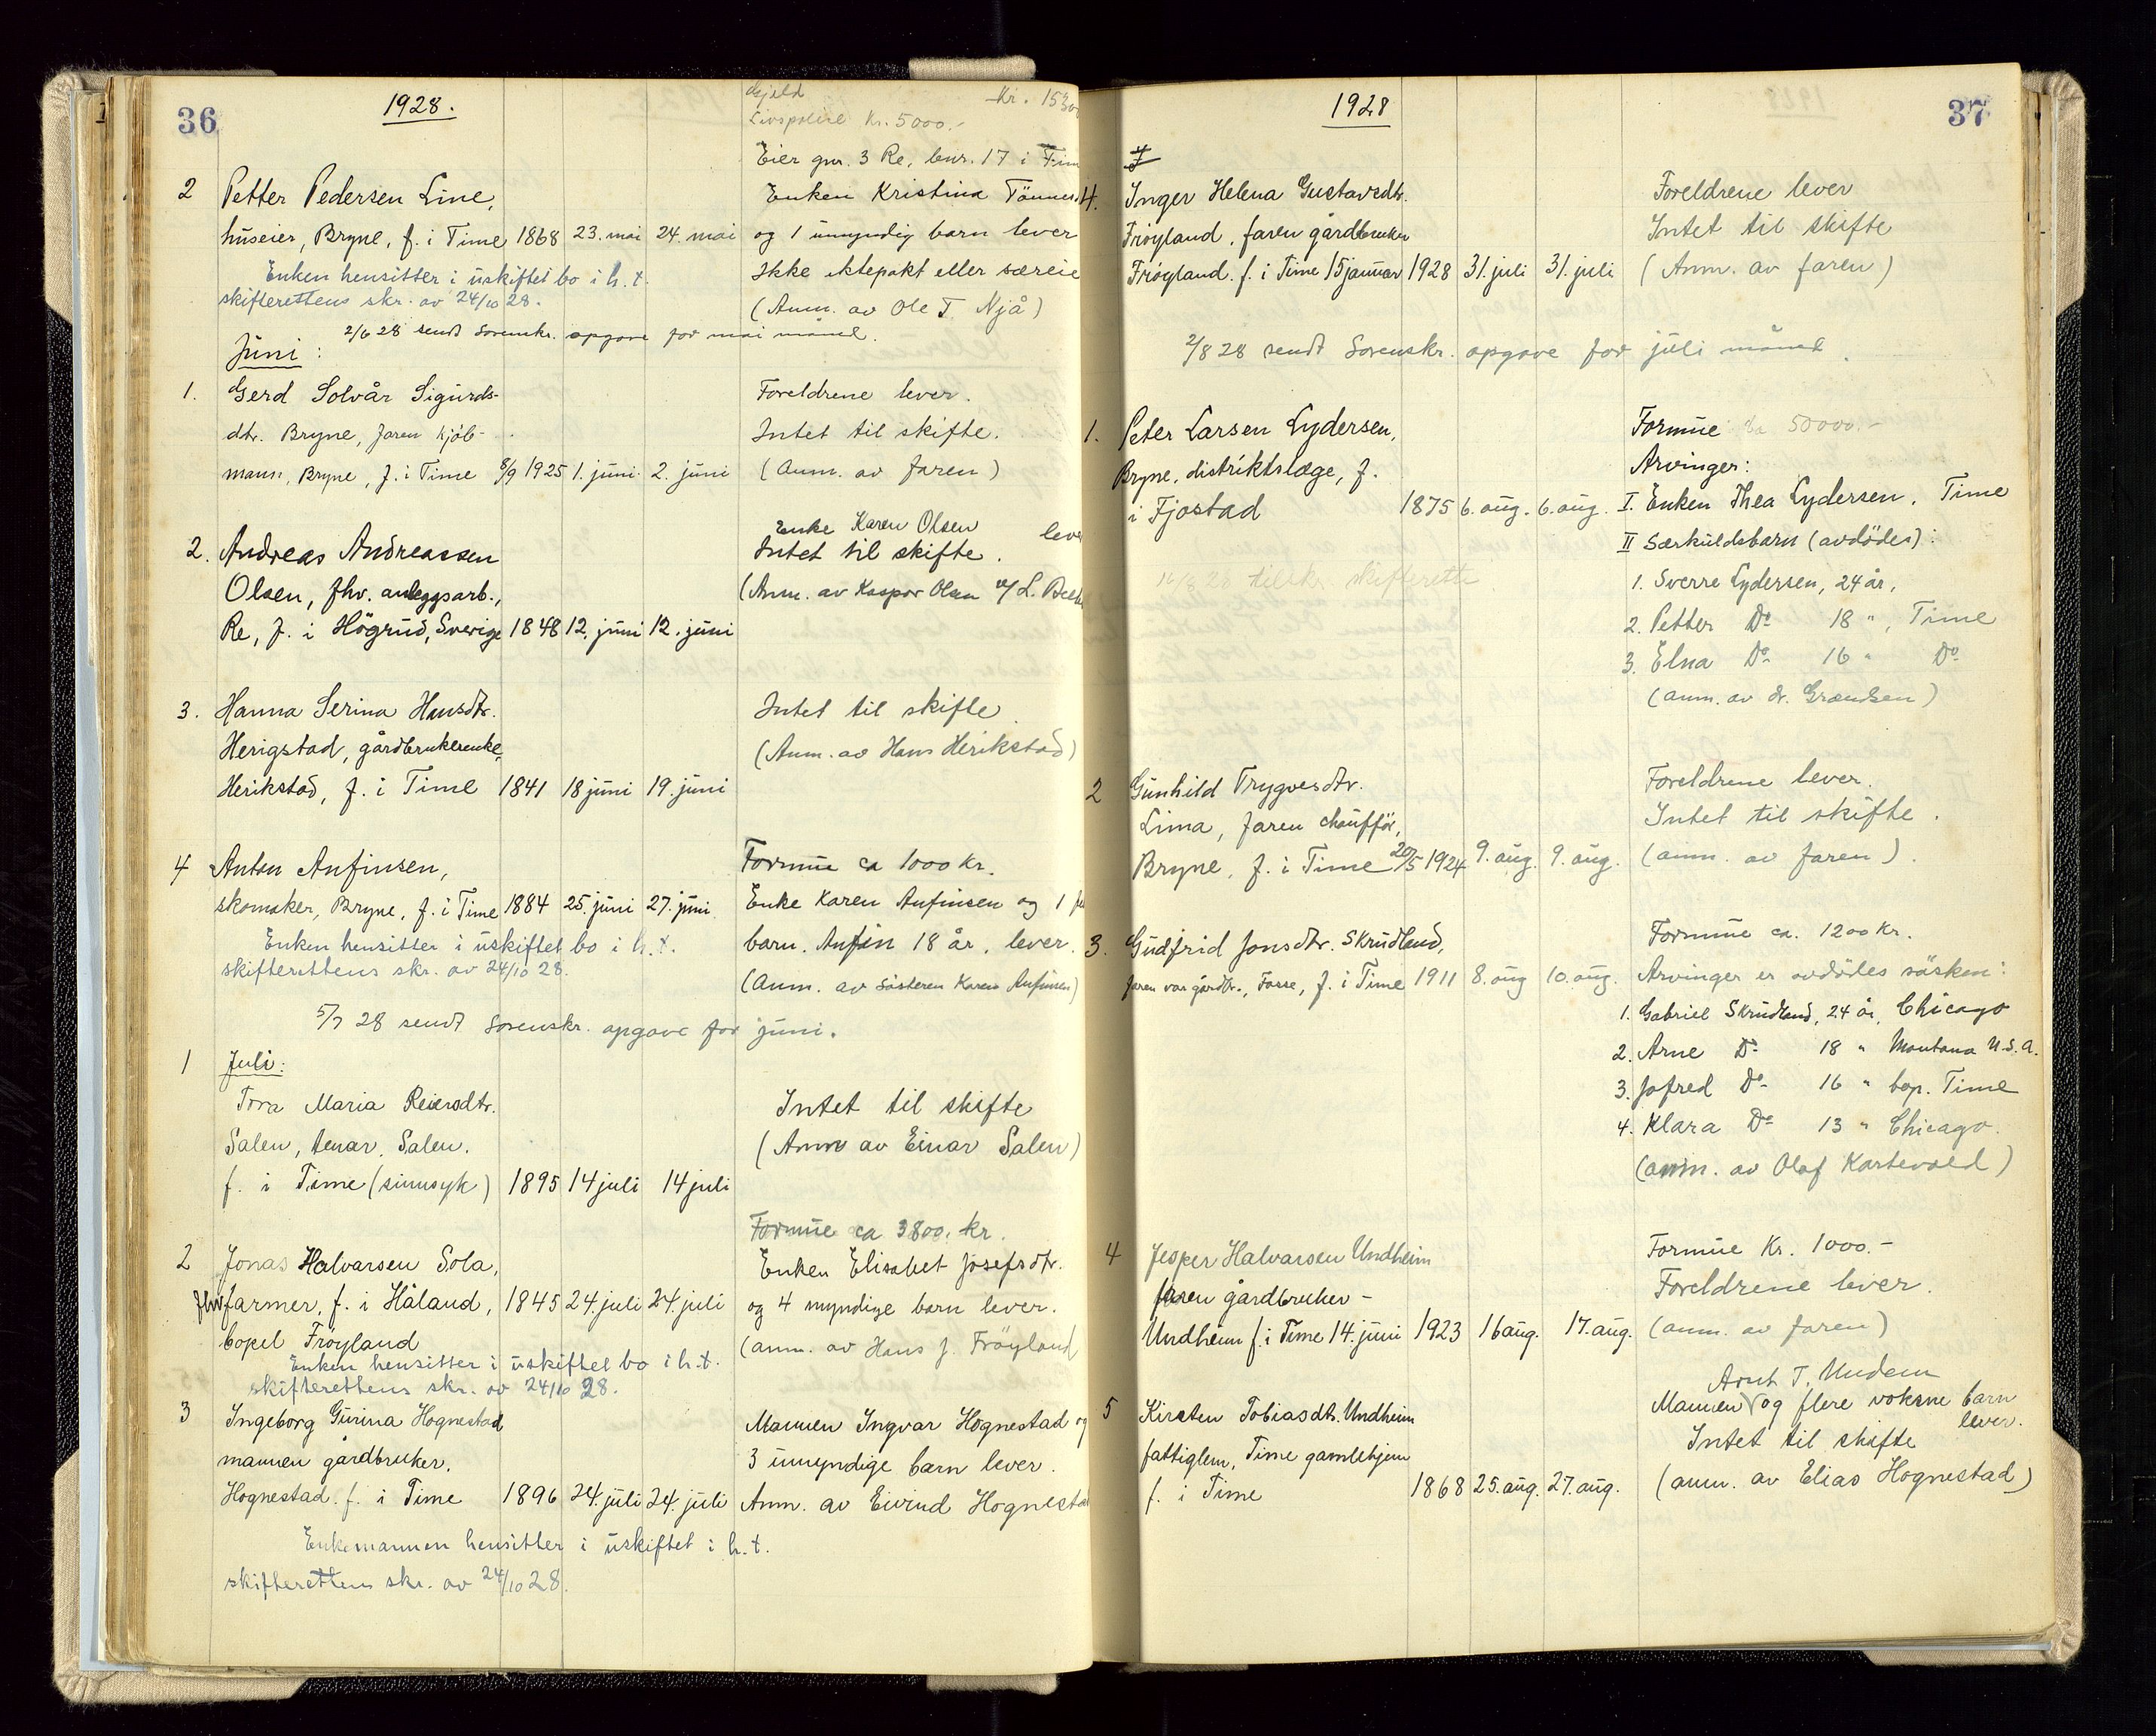 36
1928.
Gjeld Kr. 1530
Livspolise Kr. 5000.-
Eier gnr. 3 Re, bnr. 17 i Tim
2 Petter Pedersen Line,
huseier, Bryne, f. i Time 1868 23. mai 24. mai
Enken hensitter i uskiftet bo i h.t.
skifterettens skr. av 24/10 28.
Enken Kristina Tönnes
og 1 umyndig barn lever
Ikke ektepakt eller særeie
(Anm. av Ole T. Njå)
2/6 28 sendt Sorenskr. opgave for mai måned.
Juni:
1. Gerd Solvår Sigurds-
dtr. Bryne, faren kjöb-
mann, Bryne, f. i Time 8/9 1925 1. juni 2. juni
Foreldrene lever.
Intet til skifte.
(Anm. av faren)
2. Andreas Andreassen
Olsen, fhv. anleggsarb.,
Re, f. i Högrud, Sverige 1848 12. juni 12. juni
Enke Karen Olsen lever
Intet til skifte.
(Anm. av Kaspar Olsen v/ L.
3. Hanna Serina Hansdtr.
Herigstad, gårdbrukerenke,
Herikstad, f. i Time 1841 18 juni 19. juni
Intet til skifte
(Anm. av Hans Herikstad)
4 Anton Anfinsen,
skomaker, Bryne, f. i Time 1884 25. juni 27. juni
Enken hensitter i uskiftet bo i h.t.
skifterettens skr. av 24/10 28.
Formue ca 1000 kr.
Enke Karen Anfinsen og 1
barn. Anfin 18 år, lever.
(Anm. av Søsteren Karen Anfinsen)
5/7 28 sendt Sorenskr. opgave for juni.
Juli:
1 Tora Maria Reiersdtr.
Salen, tenar, Salen.
f. i Time (sinnsyk) 1895 14 juli 14 juli
Intet til skifte
(Anm av Einar Salen)
2 Jonas Halvarsen Sola,
fhv farmer, f. i Håland, 1845 24. juli 24. juli
bopel Fröyland
Enken hensitter i uskiftet bo i h.t.
skifterettens skr. av 24/10 28.
Formue ca 3800. kr.
Enken Elisabet Josefsdtr.
og 4 myndige barn lever.
(anm. av Hans J. Fröyland
3 Ingeborg Gurina Hognestad
mannen gårdbruker,
Hognestad. f. i Time 1896 24. juli 24. juli
Mannen Ingvar Hognestad og
3 umyndige barn lever.
Anm. av Eivind Hognestad
Enkemannen hensitter i uskiftet i h.t.
skifterettens skr. av 24/10 28.
37
1928
4. Inger Helena Gustavsdtr.
Fröyland, faren gårdbruker
Fröyland. f. i Time 15 januar 1928 31. juli 31. juli
Foreldrene lever
Intet til skifte
(Anm. av faren)
2/8 28 sendt Sorenskr. opgave for juli måned.
1. Peter Larsen Lydersen,
Bryne, distriktslæge, f.
i Fjostad 1875 6. aug. 6. aug.
16/8 28 tilskr. skifterett
Formue 50000.-
Arvinger:
I. Enken Thea Lydersen, Time
II Særkuldsbarn (avdödes):
1. Sverre Lydersen, 24 år,
2. Petter Do 18 ", Time
3. Elna Do 16 " Do
(anm. av dr. Grændsen)
2 Gunhild Trygvesdtr.
Lima, faren chaufför,
Bryne, f. i Time 20/5 1924 9. aug. 9. aug.
Foreldrene lever.
Intet til skifte.
(anm. av faren).
3. Gudfrid Jonsdtr. Skrudland,
faren var gårdbr., Fosse, f. i Time 1911 8. aug 10. aug.
Formue ca. 1200 kr.
Arvinger er avdödes sösken:
1. Gabriel Skrudland, 24 år, Chicago
2. Arne Do 18 " Montana U.S.A.
3. Jofred Do 16 " bop. Time
4. Klara Do 13 " Chicago.
(anm. av Olaf Kartevold)
4 Jesper Halvarsen Undheim
faren gårdbruker -
Undheim f. i Time 14. juni 1923 16 aug. 17. aug.
Formue Kr. 1000.-
Foreldrene lever.
(anm. av faren)
5 Kirsten Tobiasdtr. Undheim
fattiglem, Time gamlehjem
f. i Time 1868 25. aug. 27. aug.
Arnt T. Undem
Mannen og flere voksne barn
lever.
Intet til skifte
(anm. av Elias Hognestad)